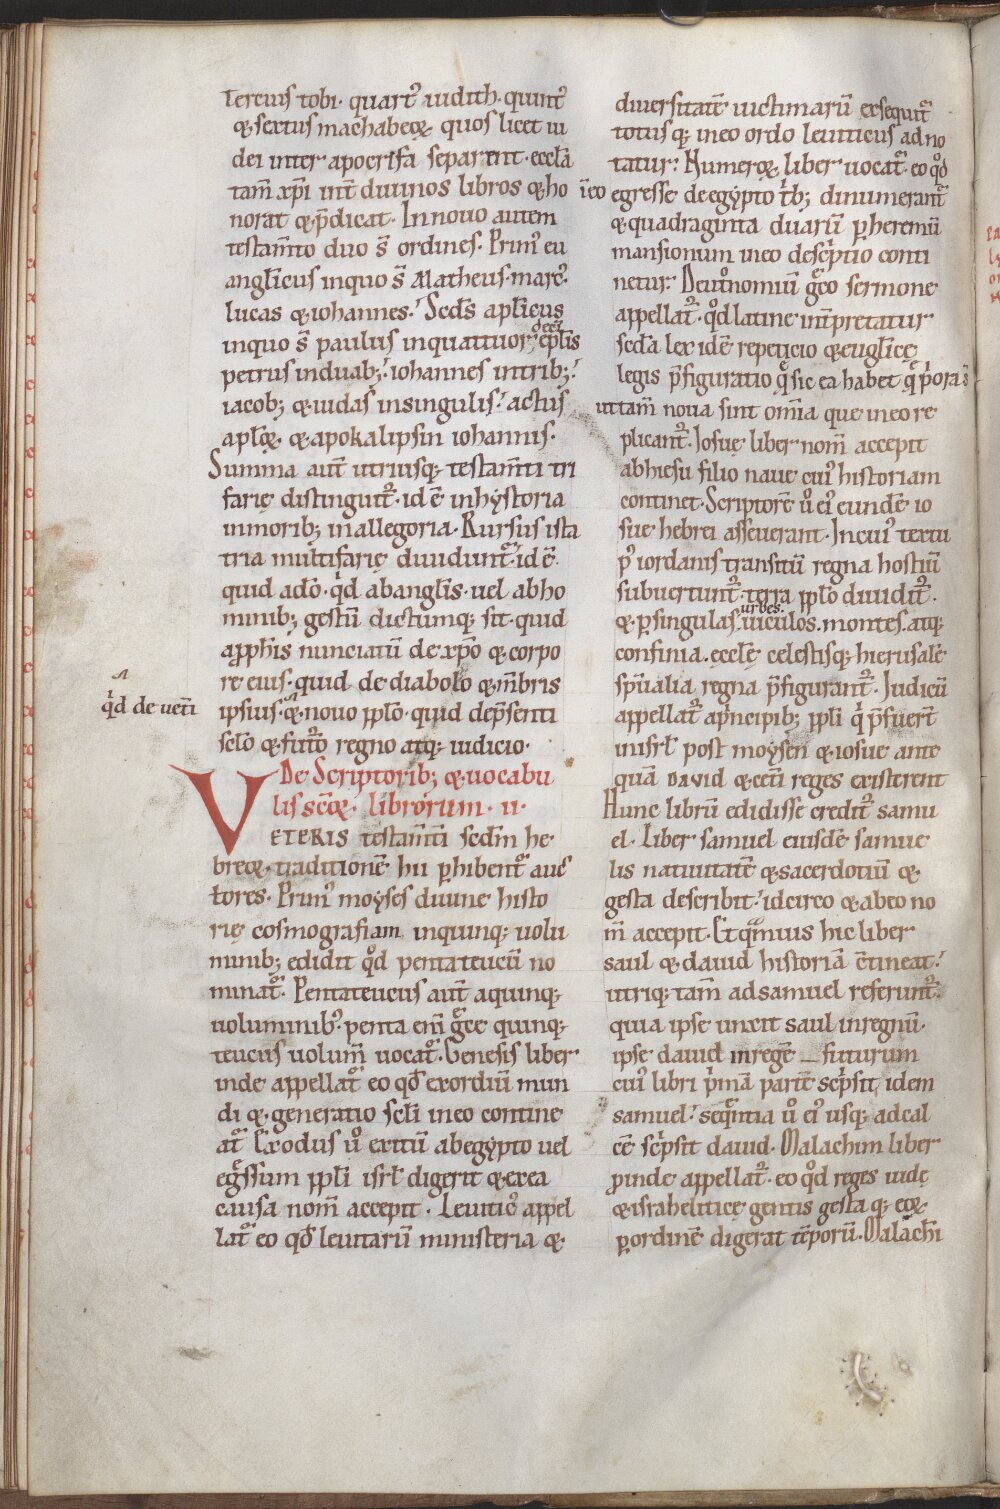 Tercius tobi. quartꝰ iudith. quintꝰ
& sextus machabeoꝝ. quos licet iu
dei inter apocrifa separent. eccła
tam̄ xp̄i int̄ diuinos libros & ho
norat & p̄dicat. In nouo autem
testam̄to duo s̄ ordines. Primꝰ eu
anglicus in quo s̄ Matheus. marcꝰ.
lucas & iohannes. Secds̄ aplicus
in quo s̄ paulus in quattuordeci ep̄lis
petrus in duab; iohannes in trib;
iacob; & iudas in singulis. actus
apłoꝝ. & apokalipsin iohannis.
Summa aut̄ utriusq; testam̄ti tri
farię distinguit᷑. id ē in hystoria
in morib; in allegoria. Rursus ista
tria multifarię diuidunt᷑. id ē
quid a do. qͥd ab anglis. uel ab ho
minib; gestū dictumq; sit. quid
a pph̄is nunciatū de xp̄o & corpo
re eius. quid de diabolo & m̄bris
qͥd de uet̄i
ipsius. & nouo pplo. quid de p̄senti
sclo & fut᷑o regno atq; iudicio.
De Scriptorib; & uocabu
lis sc̄oꝝ librorum. ii.
VETERIS testam̄ti secdm̄ he
breoꝝ. traditionē hii p̄hibent᷑ auc
tores. Primꝰ moyses diuine histo
rię cosmografiam in quinq; uolu
minib; edidit qͦd pentateucū no
minat᷑. Pentateucus aut̄ a quinq;
uoluminibꝰ. penta em̄ gͣce quinq;
teucus uolum̄ uocat᷑. Genesis liber
inde appellat᷑ eo qđ exordiū mun
di & generatio scłi in eo contine
at᷑ Exodus uͦ exitū ab egypto uel
egͣssum ppłi isrł digerit & ex ea
causa nom̄ accepit. Leuiticꝰ appel
lat᷑ eo qđ leuitarū ministeria &
diuersitatē uictimarū exsequit᷑
totusq; in eo ordo leuiticus adno
tatur. Numeroꝝ liber uocat᷑. eo qͦd
in eo egresse de egypto t̄b; dinumerant᷑
& quadraginta duarū p heremū
mansionum in eo descͥptio conti
netur. Deut᷑nomiū gͣco sermone
appellat᷑. qͦd latine int̄pretatur
secda lex id ē repeticio & euglicę
legis p̄figuratio qͣ sic ea habet qͣ pͥora s̄
ut tam̄ noua sint om̄ia que in eo re
plicant᷑. Iosuę liber nom̄ accepit
ab hiesu filio naue cuiꝰ historiam
continet. Scriptorē uͦ eiꝰ eundē io
sue hebrei asseuerant. In cuiꝰ textu
pꝰ iordanis transitū regna hostiū
subuertunt᷑. terra pplo diuidit᷑.
& p singulas urbes. uiculos. montes. atq;
confinia. ecclę celestisq; hierusalē
sp̄ualia regna p̄figurant᷑. Iudicū
appellat᷑ a pͥncipib; ppli qͥ p̄fuert̄
in isrł post moysen & iosue ante
quā DAVID & cet̄i reges existerent
Hunc librū edidisse credit᷑ samu
el. Liber samuel eiusdē samue
lis natiuitatē & sacerdotiū &
gesta describit. idcirco & ab eo no
m̄ accepit. Et qͣmuis hic liber
saul & dauid historiā ꝯtineat.
utriq; tam̄ ad samuel referunt᷑.
quia ipse unxit saul in regnū.
ipse dauid in regē futurum
cuiꝰ libri pͥmā partē scͥpsit idem
samuel. seqͣntia uͦ eiꝰ usq; ad cal
cē scͥpsit dauid. Malachim liber
proinde appellat᷑. eo qͦd reges iudę
& israheliticę gentis gestaq; eoꝝ
p ordinē digerat tēporū. Malachi